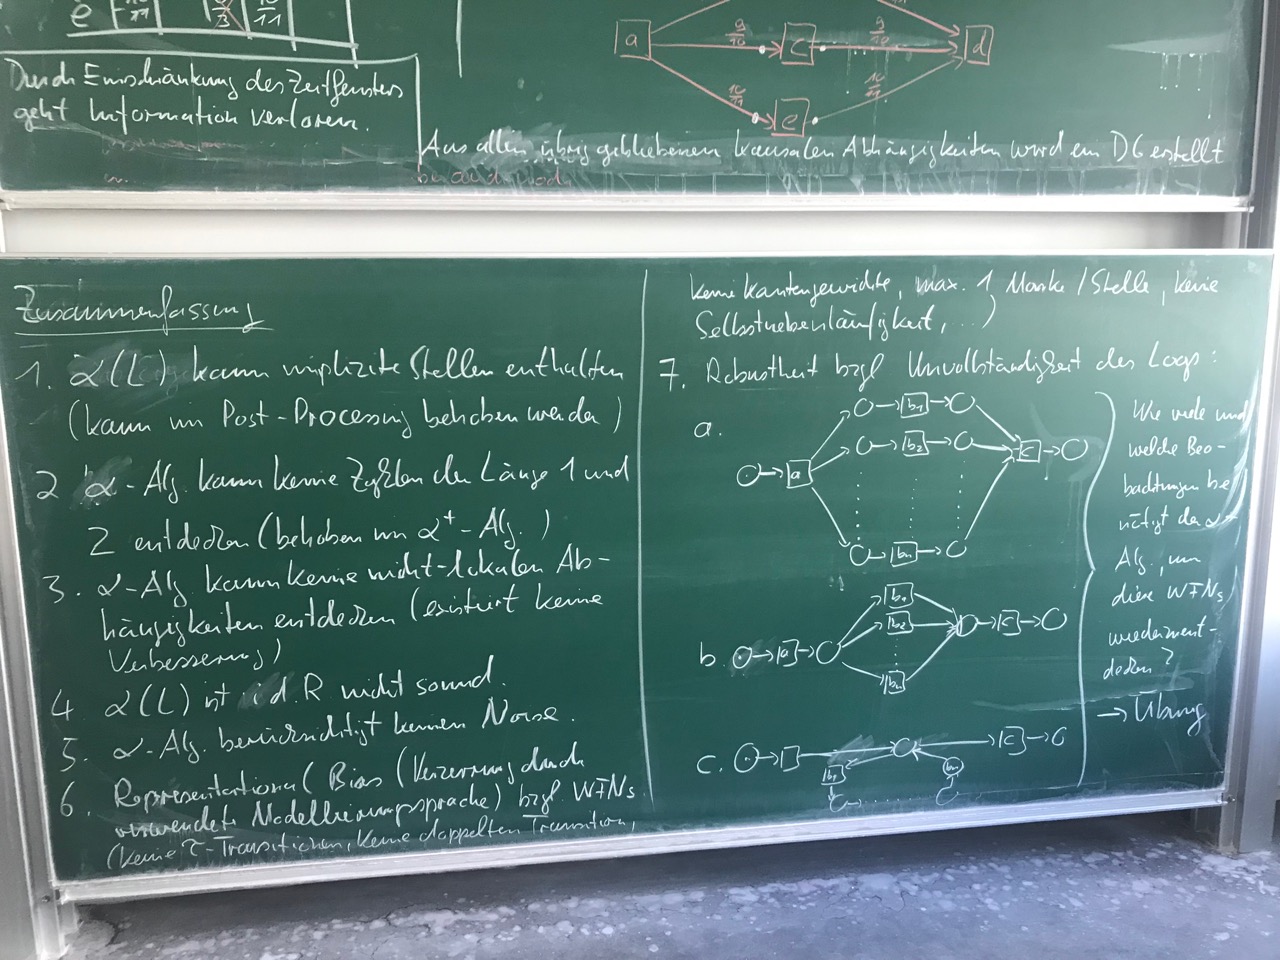 e
10/11
Durch Einschränkung des Zeitfensters
geht Information verloren.
a
9/10
c
9/10
d
10/11
e
10/11
Aus allen übrig gebliebenen kausalen Abhängigkeiten wird ein DG erstellt
Zusammenfassung
1. α(L) kann implizite Stellen enthalten
(kann im Post-Processing behoben werden)
2 α-Alg. kann keine Zyklen der Länge 1 und
2 entdecken (behoben im α⁺-Alg.)
3. α-Alg kann keine nicht-lokalen Ab-
hängigkeiten entdecken (existiert keine
Verbesserung)
4. α(L) ist i.d.R nicht sound.
5. α-Alg. berücksichtigt keinen Noise.
6. Representational Bias (Verzerrung durch
verwendete Modellierungssprache) bzgl. WFNs
(keine τ-Transitionen, keine doppelten Transition,
keine Kantengewichte, max. 1 Marke / Stelle, keine
Selbstnebenläufigkeit, ...)
7. Robustheit bzgl Unvollständigkeit des Logs:
a.
a
b₁
b₂
bₙ
c
b.
a
b₁
b₂
bₙ
c
c.
b₁
bₙ
c
Wie viele und
welche Beo-
bachtungen be-
nötigt der α-
Alg., um
diese WFNs
wiederzuent-
decken?
→ Übung